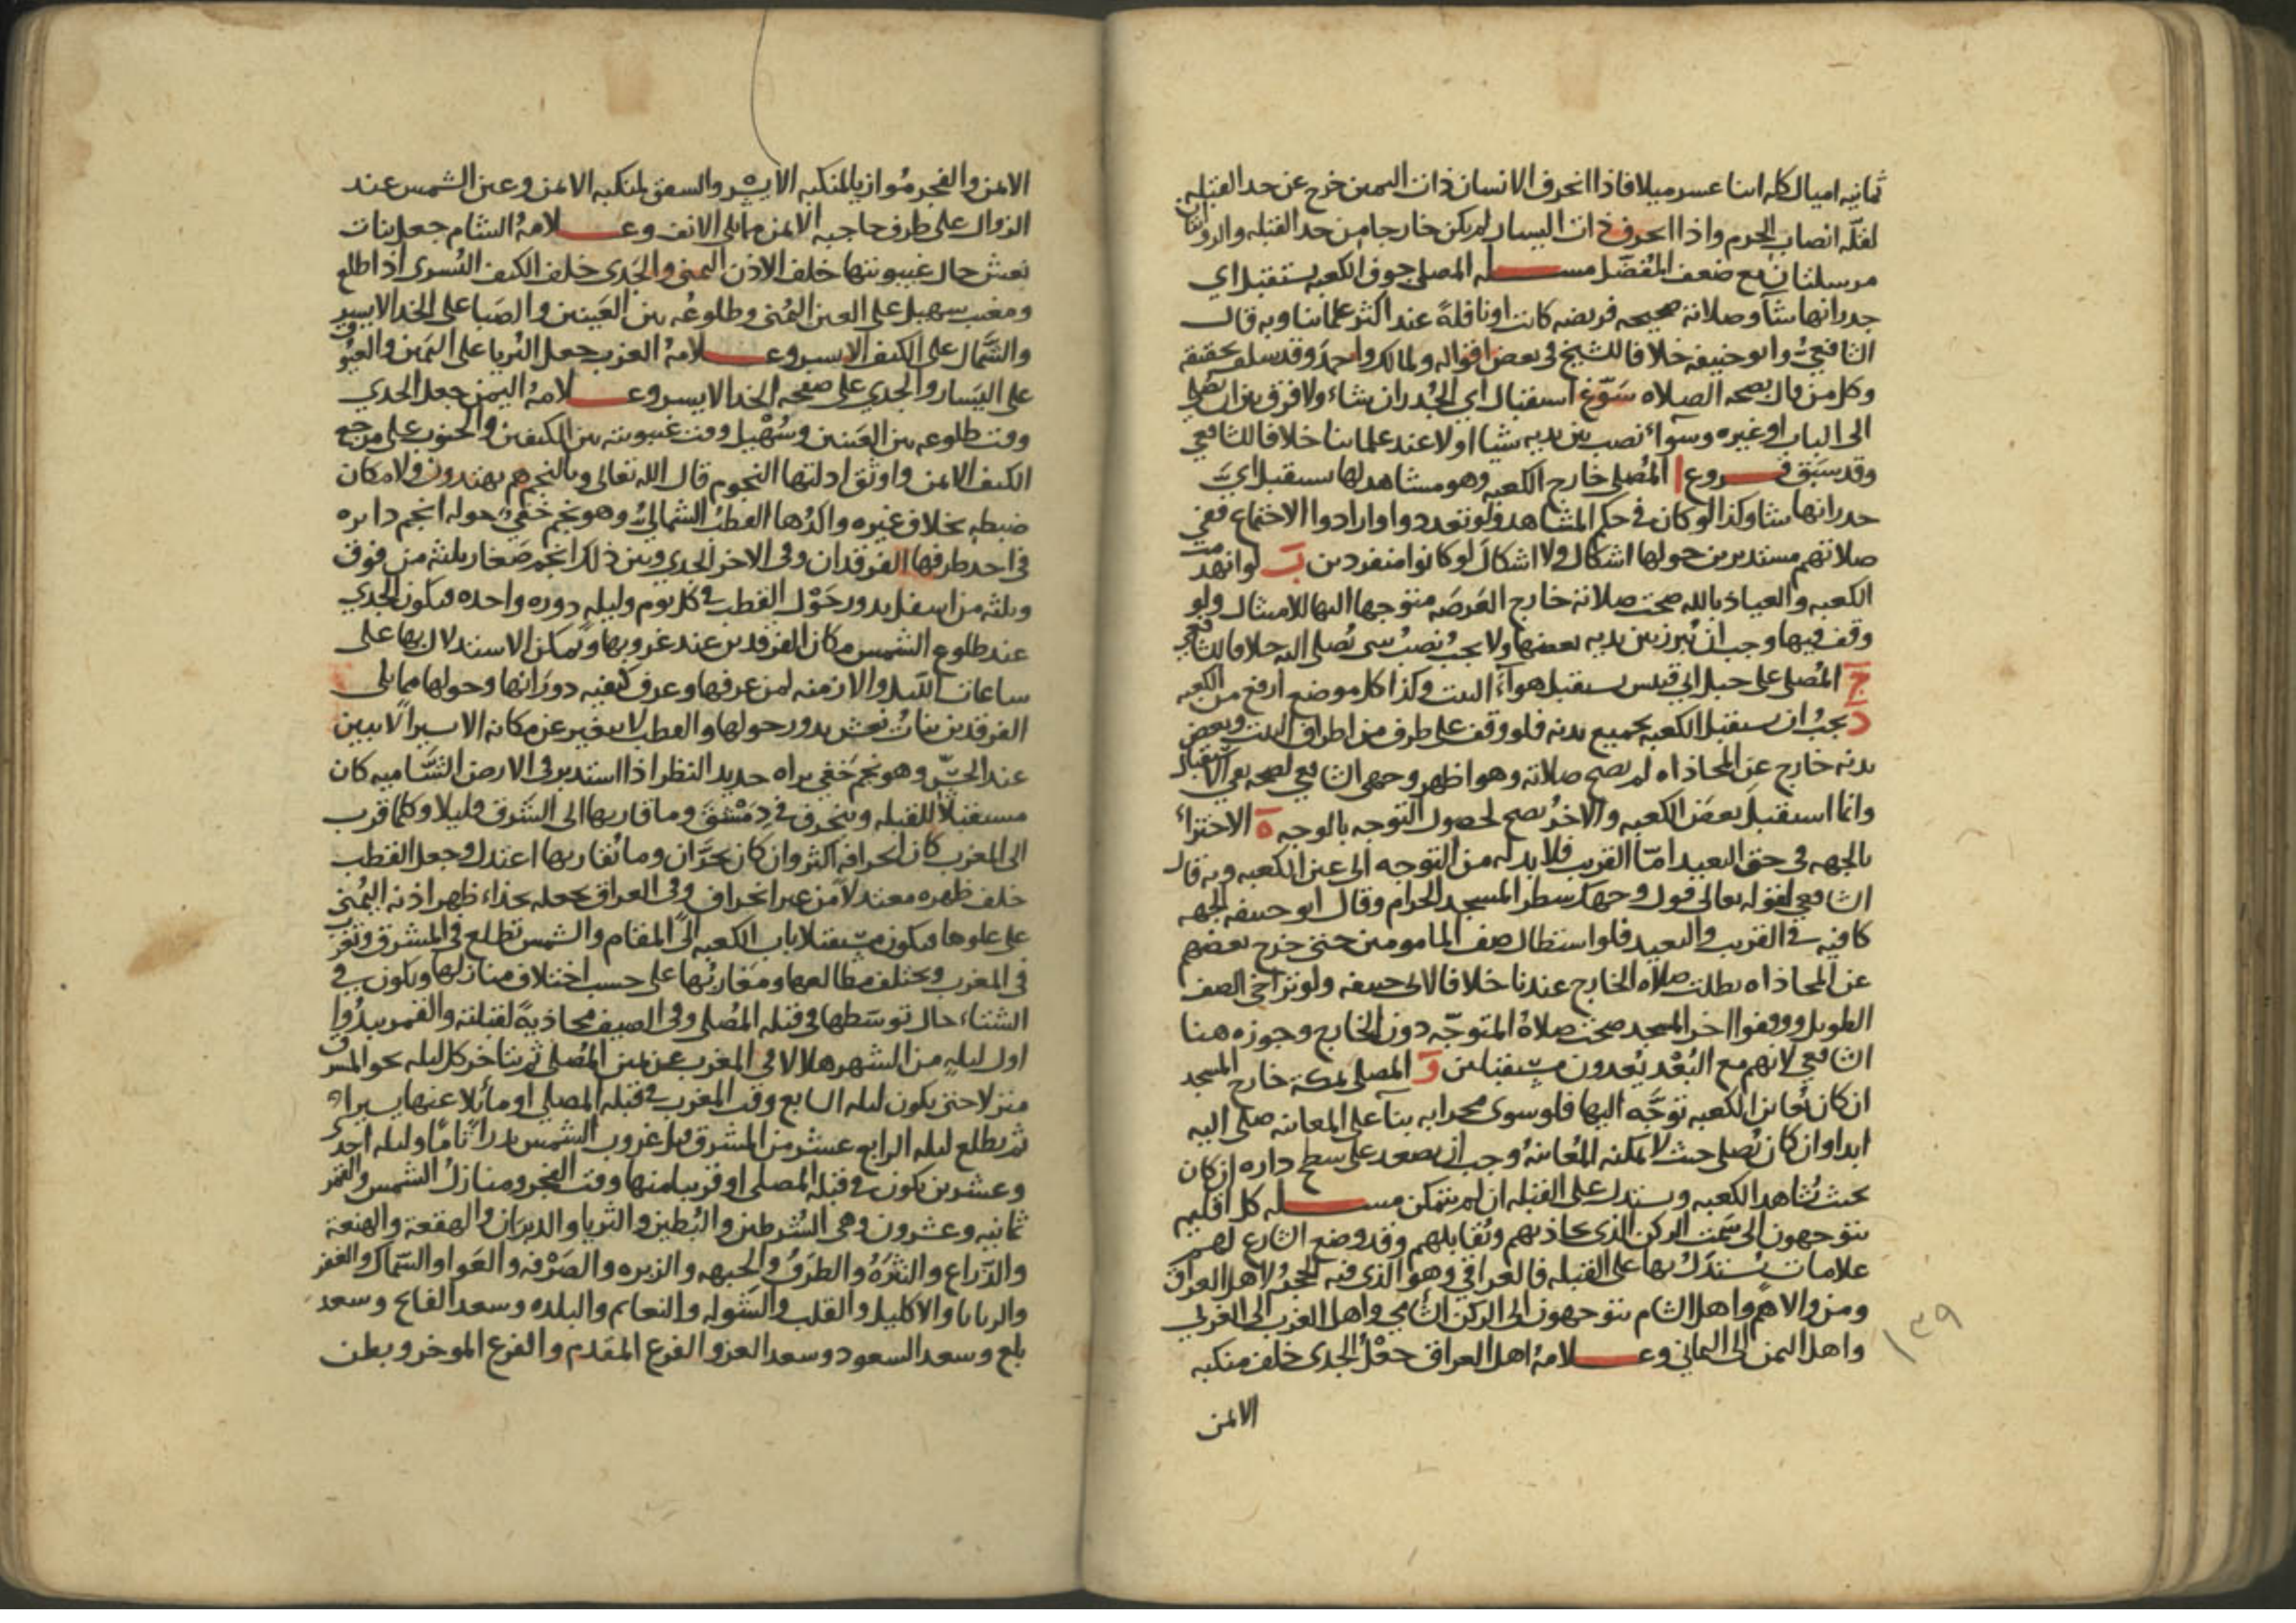 ثمانيه اميال كله اثنا عشر ميلا فاذا انحرف الانسان ذات اليمين خرج عن حد القبله
لقله انصاب الحرم واذا انحرف ذات اليسار لم يكن خارجا من حد القبله والروايتان
مرسلتان مع ضعف المفضل مسله المصلي جوف الكعبه يستقبل اي
جدرانها شآ وصلاته صحيحه فريضه كانت او نافلةً عند اكثر علمائنا وبه قال
الشافعي وابو حنيفه خلافا للشيخ في بعض اقواله ولمالك واحمد وقد سلف تحقيقه
وكل من قال بصحه الصلاه سَوَّغ استقبال اي الجُدران شاء ولا فرق بين ان يصلي
الى الباب او غيره وسوآء نصب بين يديه شيا او لا عند علمائنا خلافا للشافعي
وقد سبق فروع ا المصلي خارج الكعبه وهو مشاهد لها يستقبل اي
جدرانها شا وكذا لو كان في حكم المشاهد ولو تعددوا وارادوا الاجتماع ففي
صلاتهم مستديرين حولها اشكال ولا اشكال لو كانوا منفردين ب لو انهدمت
الكعبه والعياذ بالله صحت صلاته خارج العَرصَه متوجها اليها للامتثال ولو
وقف فيها وجب ان يُبرز بين يديه بعضها ولا يجب نصبُ شي يُصلي اليه خلافا للشافعي
ج المُصلي على جبل ابي قبيس يستقبل هوآء البيت وكذا كل موضع ارفع من الكعبه
د يجبُ ان يستقبل الكعبه بجميع بدنه فلو وقف على طرف من اطراف البيت وبعض
بدنه خارج عن المحاذاه لم تصح صلاته وهو اظهر وجهي الشافعي لصحه نفي الاستقبال
وانما استقبل بعضَ الكعبه والاخرُ يصح لحصول التوجه بالوجه ه الاجتزاء
بالجهه في حق البعيد امّا القريب فلا بد له من التوجه الى عين الكعبه وبه قال
الشافعي لقوله تعالى فول وجهك شطر المسجد الحرام وقال ابو حنيفه الجهه
كافيه في القريب والبعيد فلو استطال صف المامومين حتى خرج بعضهم
عن المحاذاه بطلت صلاه الخارج عندنا خلافا لابي حنيفه ولو تراخى الصف
الطويل ووقفوا اخر المسجد صحت صلاةُ المتوجّه دون الخارج وجوزه هنا
الشافعي لانهم مع البُعْد يُعدون مستقبلين و المصلي بمكة خارج المسجد
ان كان يُعاين الكعبه توَجَّه اليها فلو سوى محرابه بنآ على المعاينه صلى اليه
ابدا وان كان يُصلي حيث لا يمكنه المُعاينهُ وجب ان يصعد على سطح داره ان كان
بحيث يُشاهد الكعبه ويستدل على القبله ان لم يتمكن مسله كل اقليم
يتوجهون الى سَمت الركن الذي يحاذيهم ويُقابلهم وقد وضع الشارع لهم
علامات يُستَدَلُ بها على القبله فالعراقي وهو الذي فيه الحجرُ لاهل العراق
ومن والاهم واهل الشام يتوجهون الى الركن الشامي واهل الغرب الى الغربي
واهل اليمن الى اليماني وعلامةُ اهل العراق جَعْلُ الجدي خلف منكبه
الايمن
١٣٩
الايمن والفجر مُوازيا لمنكبه الايسر والشفق لمنكبه الايمن وعين الشمس عند
الزوال على طرف حاجبه الايمن مما يلي الانف وعلامةُ الشام جعل بنات
نعش حال غيبوبتها خلف الاذن اليمنى والجَدي خلف الكتف اليُسرى اذا طلع
ومغيب سهيل على العين اليُمنى وطلوعُه بين العَينين والصَبا على الخد الايسر
والشَّمال على الكتف الايسر وعلامةُ الغرب جعل الثريا على اليَمين والعيُّوق
على اليَسار والجدي على صفحه الخد الايسر وعلامةُ اليمن جعل الجدي
وقت طلوعه بين العَينين وسُهَيل وقت غيبوبته بين الكتفين والجنوب على مرجع
الكتف الايمن واوثق ادلتها النجوم قال الله تعالى وبالنجم هم يهتدون ولامكان
ضبطه بخلاف غيره واكدُها القطبُ الشماليُّ وهو نجم خَفي حوله انجم دايره
في احد طرفها الفرقدان وفي الاخر الجدي وبين ذلك انجم صغار ثلثه من فوق
وثلثه من اسفل يدور حَوْل القطب في كل يوم وليله دوره واحده فيكون الجدي
عند طلوع الشمس مكان الفرقدين عند غروبها ويمكن الاستدلال بها على
ساعات الليل والازمنه لمن عرفها وعرف كيفيه دورَانها وحولها مما يلي
الفرقدين بناتُ نعش يدور حولها والقطب لا يتغير عن مكانه الا يسيرا لا يبين
عند الحسّ وهو نجم خَفي يراه حديد النظر اذا استدبر في الارض الشّاميه كان
مستقبلا للقبله وينحرف في دِمَشْق وما قاربها الى الشَرق قليلا وكلما قرب
الى المغرب كان انحرافه اكثر وان كان بحَرَّان وما يُقاربها اعتدل وجعل القطب
خلف ظهره معتدلا من غير انحراف وفي العراق يجعله بحذاء ظهر اذنه اليُمنى
على علوها فيكون مستقبلا باب الكعبه الى المقام والشمس تطلع في المشرق وتغرب
في المغرب ويختلف مطالعها ومَغاربُها على حسب اختلاف منازلها ويكون في
الشتاء حال توسّطها في قبله المُصلي وفي الصيف محاذيةً لقبلته والقمر يبدُوا
اول ليله من الشهر هلالا في المغرب عن يمين المُصلي ثم يتاخر كل ليله نحو المشرق
منزلا حتى يكون ليله السابع وقت المغرب في قبله المصلي او مائلا عنها يسيرا
ثم يطلع ليله الرابع عشر من المشرق قبل غروب الشمس بدرًا تامًّا وليله احدى
وعشرين يكون في قبله المصلي او قريبا منها وقت الفجر ومنازلُ الشمس والقمر
ثمانيه وعشرون وهي الشُرطين والبُطين والثريا والدبران والهقعة والهنعة
والذّراع والنثرَهُ والطرَفُ والجبهه والزبره والصَرْفه والعَوا والسّماك والغفر
والزبانا والاكليل والقلب والشوله والنعايم والبلده وسعد الذابح وسعد
بلع وسعد السعود وسعد  الفرع المقدم والفرع الموخر وبطن